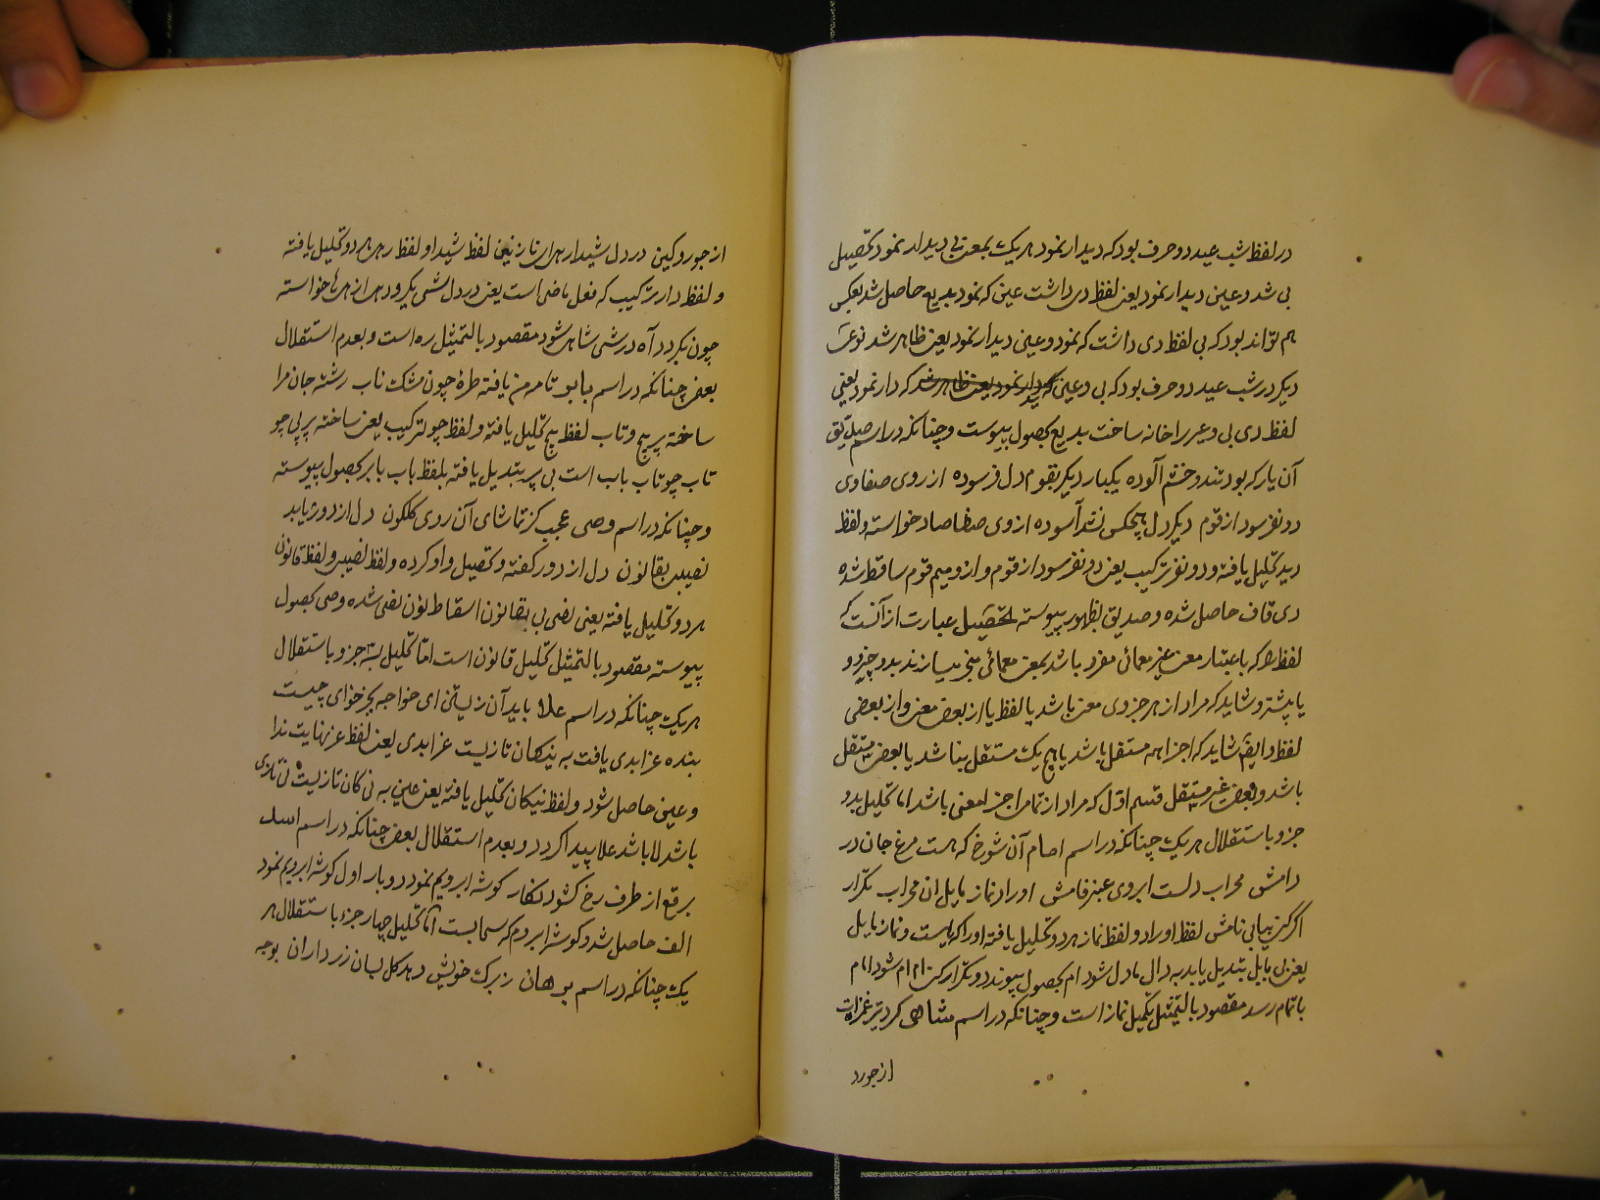 در لفظ شب عید دو حرف بود که دیدار نمود هر یک بمعنی بی دیدار نمود تحصیل
بی شد و عین دیدار نمود یعنی لفظ دی داشت عین که نمود بدیع حاصل شد بعکس
هم تواند بود که بی لفظ دی داشت که نمود و عین دیدار نمود یعنی ظاهر شد
دیگر در شب عید دو حرف بود که بی و عین که دار نمود یعنی
لفظ دی بی و عین را خانه ساخت بدیع بحصول پیوست و چنانکه در اسم صدیق
آن یار که بود تند و خشم آلوده یکبار دیگر بقوم دل فرسوده از روی صفا وی
دو نفر سود از قوم دیگر دل هیچکس نشد آسوده از وی صفا صاد خواسته و لفظ
دید تحلیل یافته و دو نفر ترکیب یعنی دو نفر سود از قوم و از و میم قوم ساقط شده
دی قاف حاصل شده و صدیق بظهور پیوسته تحصیل عبارت از آنست که
لفظ را که باعتبار معنی غیر معمائی مفرد باشد بمعنی معمائی میسازند بدو چیز و
یا بیشتر و شاید که مراد از هر جزوی معنی باشد یا لفظ یا از بعض معنی و از بعضی
لفظ و ایضا شاید که اجزا همه مستقل باشد یا هیچ یک مستقل نباشد یا بعض مستقل
باشد و بعضی غیر مستقل قسم اول که مراد از تمام اجزا معنی باشد اما تحلیل بدو
جزو باستقلال هر یک چنانکه در اسم امام آن شوخ که هست مرغ جان در
دامش محراب دلست ابروی عنبر فامش اوراد نماز مایل ان محراب تکرار
اگر کنی بیابی نامش لفظ اوراد و لفظ نماز هر دو تحلیل یافته و نماز مایل
یعنی بی مایل تبدیل یابد به دال مادل شود ام بحصول پیوندد و تکرار کن ام ام شود امام
باتمام رسد مقصود بالتمثیل تحلیل نماز است و چنانکه در اسم شاهی کرد تیر غمزات
از جورد
از جور و کین در دل شیدا رهی ان نازنین لفظ شیدا و لفظ رهی هر دو تحلیل یافته
و لفظ دار ترکیب که فعل ماضی است یعنی در دل شی بگرود هی از هی ها خواسته
چون بگردد آه در شی شاهی شود مقصود بالتمثیل ره است و بعدم استقلال
بعض چنانکه در اسم بابو تا مه من یافته طره چون مشکت ناب رشته جان مرا
ساخته پر پیچ و تاب لفظ پیچ تحلیل یافته و لفظ چو ترکیب یعنی ساخته پر پی چو
تاب چو تاب باب است بی پر تبدیل یافته بلفظ باب بابر بحصول پیوسته
و چنانکه در اسم وصی عجب کز تماشای آن روی گلگون دل از دور یابد
نصیبی بقانون دل از دور گفته و تحصیل واو کرده و لفظ نصیبی و لفظ قانون
هر دو تحلیل یافته یعنی نصی بی بقانون اسقاط نون نصی شده وصی بحصول
پیوسته مقصود بالتمثیل تحلیل قانون است اما تحلیل بسه جزو باستقلال
هر یک چنانکه در اسم علا باید آن زیستی ای خواجه بجز خدای چیست
بنده عز ابدی یافت به نیکان تا زیست عز ابدی یعنی لفظ عز نهایت ندا
و عین حاصل شود و لفظ نیکان تحلیل یافته یعنی عین به نی کان تا زیست نی تازی
باشد لا باشد علا پیدا کردد و بعدم استقلال بعض چنانکه در اسم اسد
برقع از طرف رخ کشود نگار گوشه ابرویم نمود دو بار اول گوشه ابرویم نمود
الف حاصل شد و گوشه ابر دم که سحابست اما تحلیل چهار جزء باستقلال هر
یک چنانکه در اسم برهان ز برک خویش دهد کل بسان زر داران بوجه